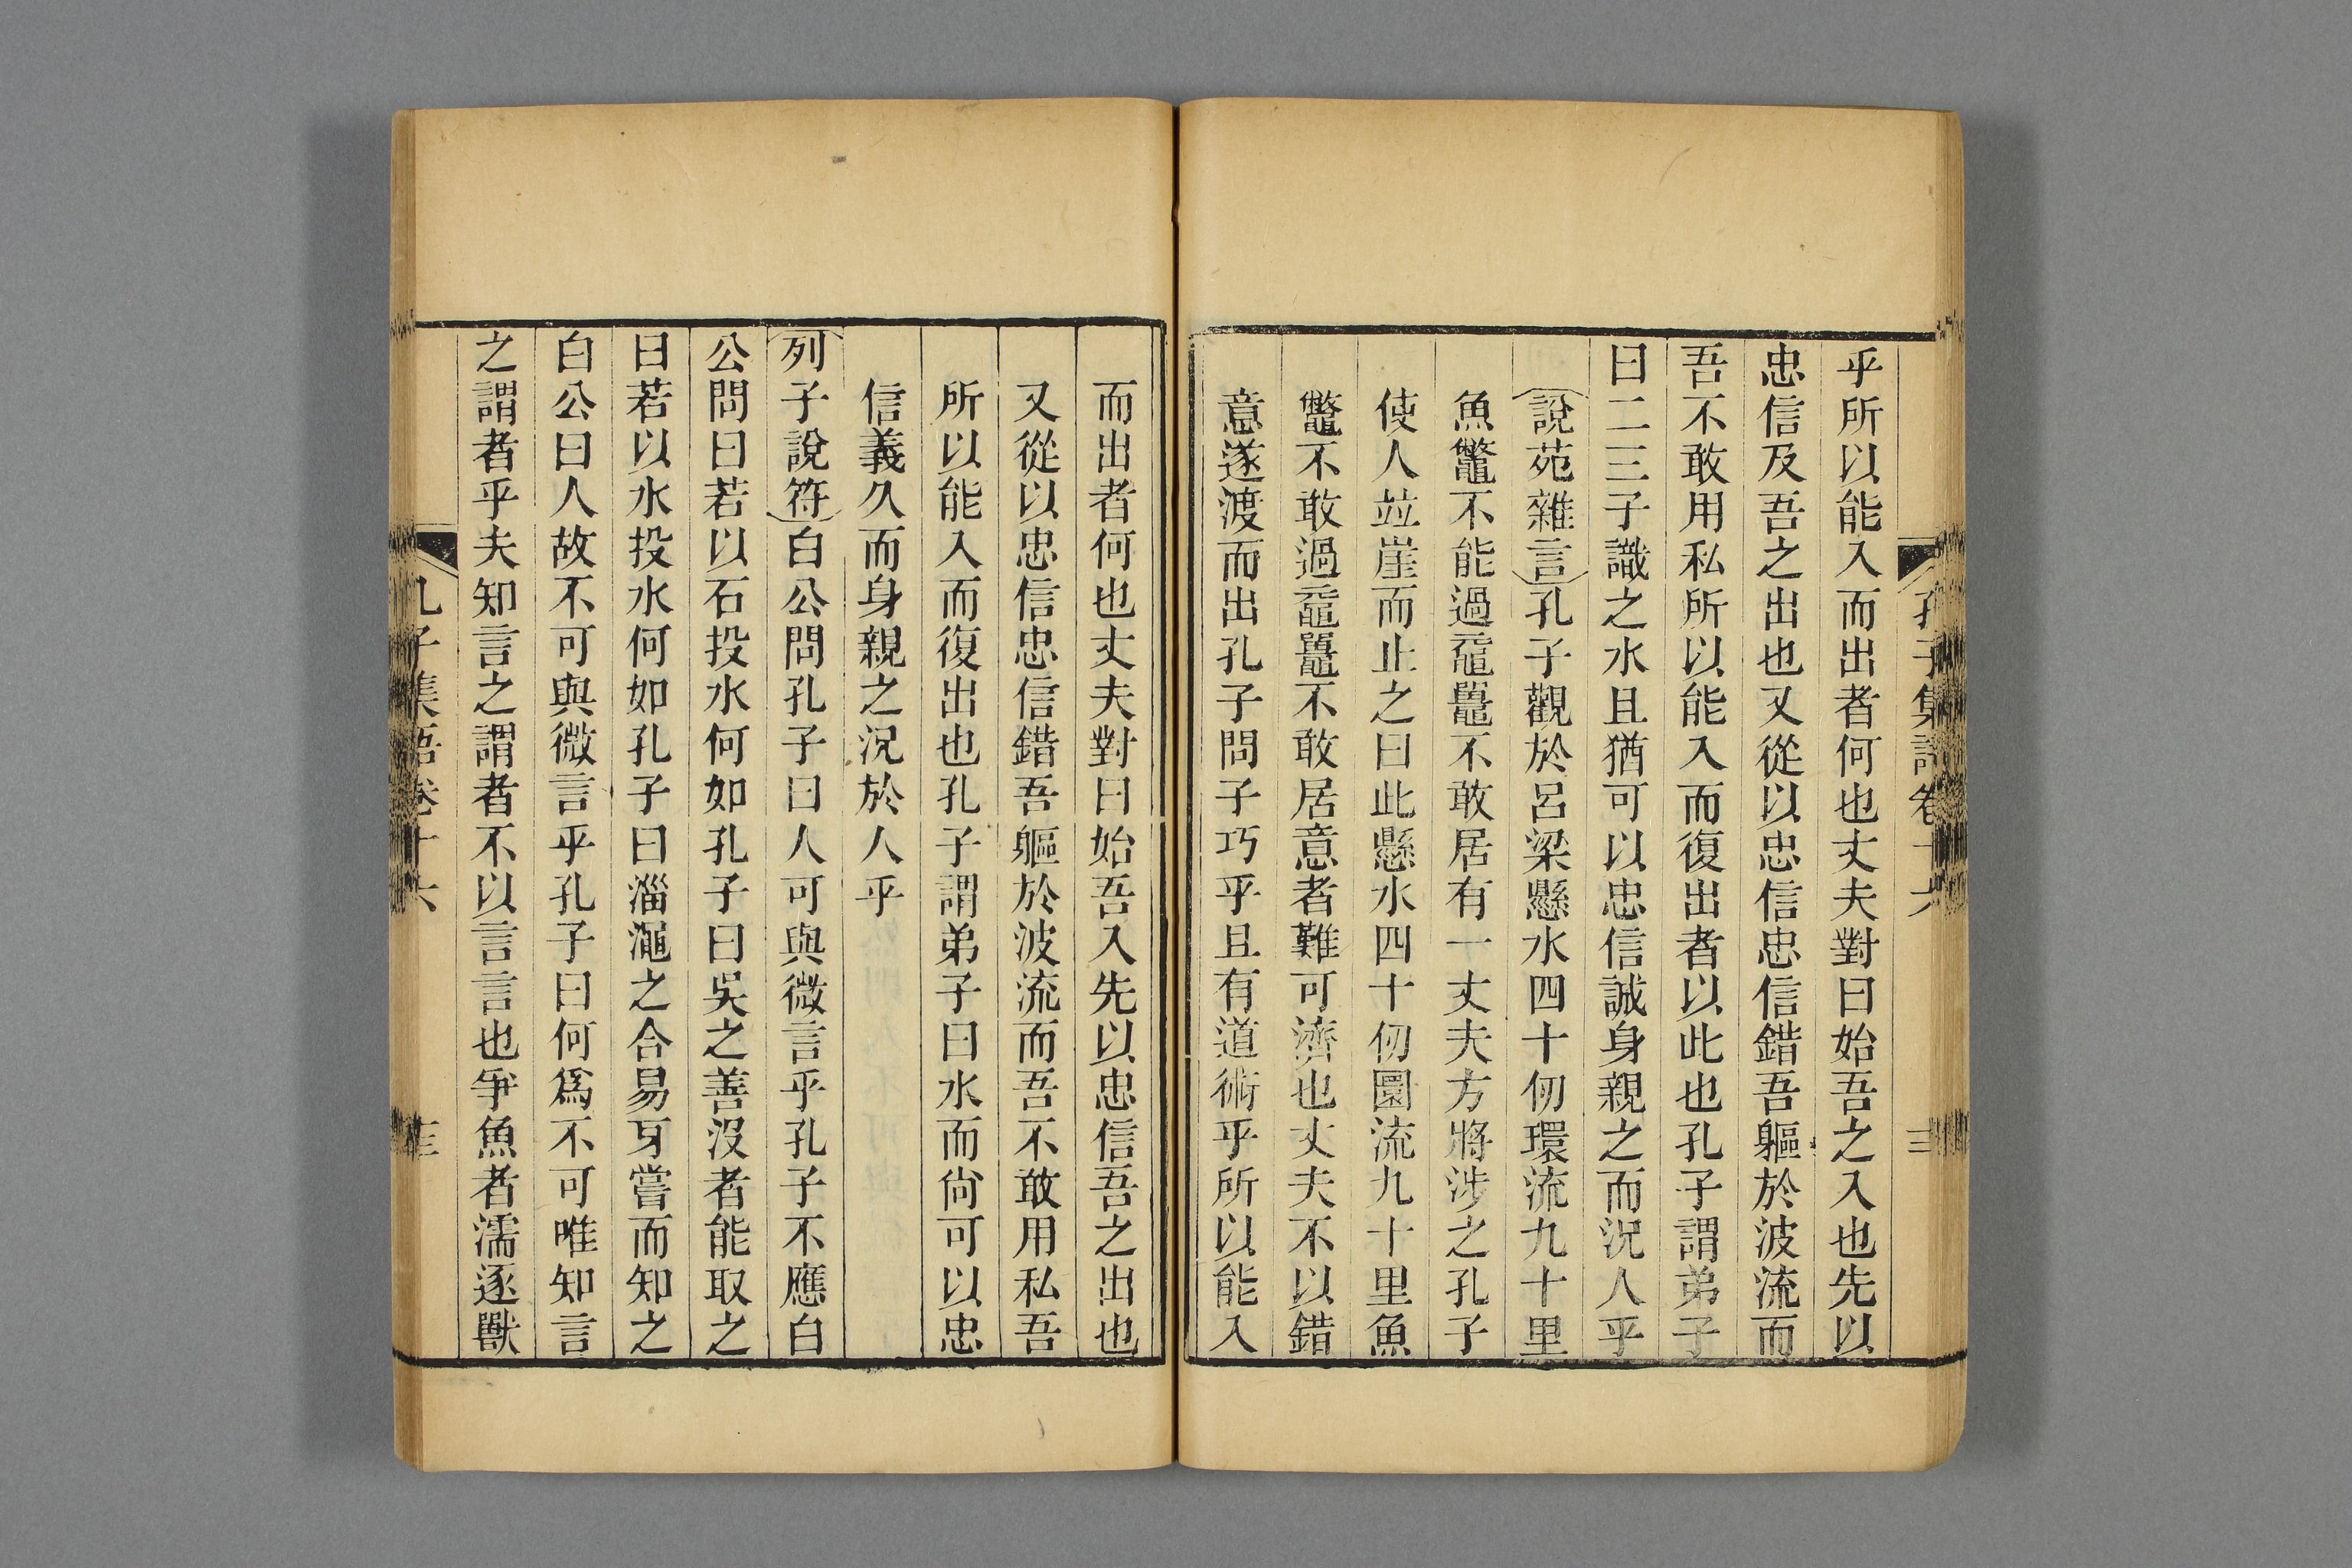 乎所以能入而出者何也丈夫對曰始吾之入也先以
忠信及吾之出也又從以忠信忠信錯吾軀於波流而
吾不敢用私所以能入而復出者以此也孔子謂弟子
曰二三子識之水且猶可以忠信誠身親之而況人乎
說苑雜言孔子觀於呂梁懸水四十仞環流九十里
魚鼈不能過黿鼉不敢居有一丈夫方將涉之孔子
使人竝崖而止之曰此懸水四十仞圜流九十里魚
鼈不敢過黿鼉不敢居意者難可濟也丈夫不以錯
意遂渡而出孔子問子巧乎且有道術乎所以能入
而出者何也丈夫對曰始吾入先以忠信吾之出也
又從以忠信忠信錯吾軀於波流而吾不敢用私吾
所以能入而復出也孔子謂弟子曰水而尙可以忠
信義久而身親之況於人乎
列子說符白公問孔子曰人可與微言乎孔子不應白
公問曰若以石投水何如孔子曰吳之善沒者能取之
曰若以水投水何如孔子曰淄澠之合易牙嘗而知之
白公曰人故不可與微言乎孔子曰何爲不可唯知言
之謂者乎夫知言之謂者不以言言也爭魚者濡逐獸
孔子集語卷十六